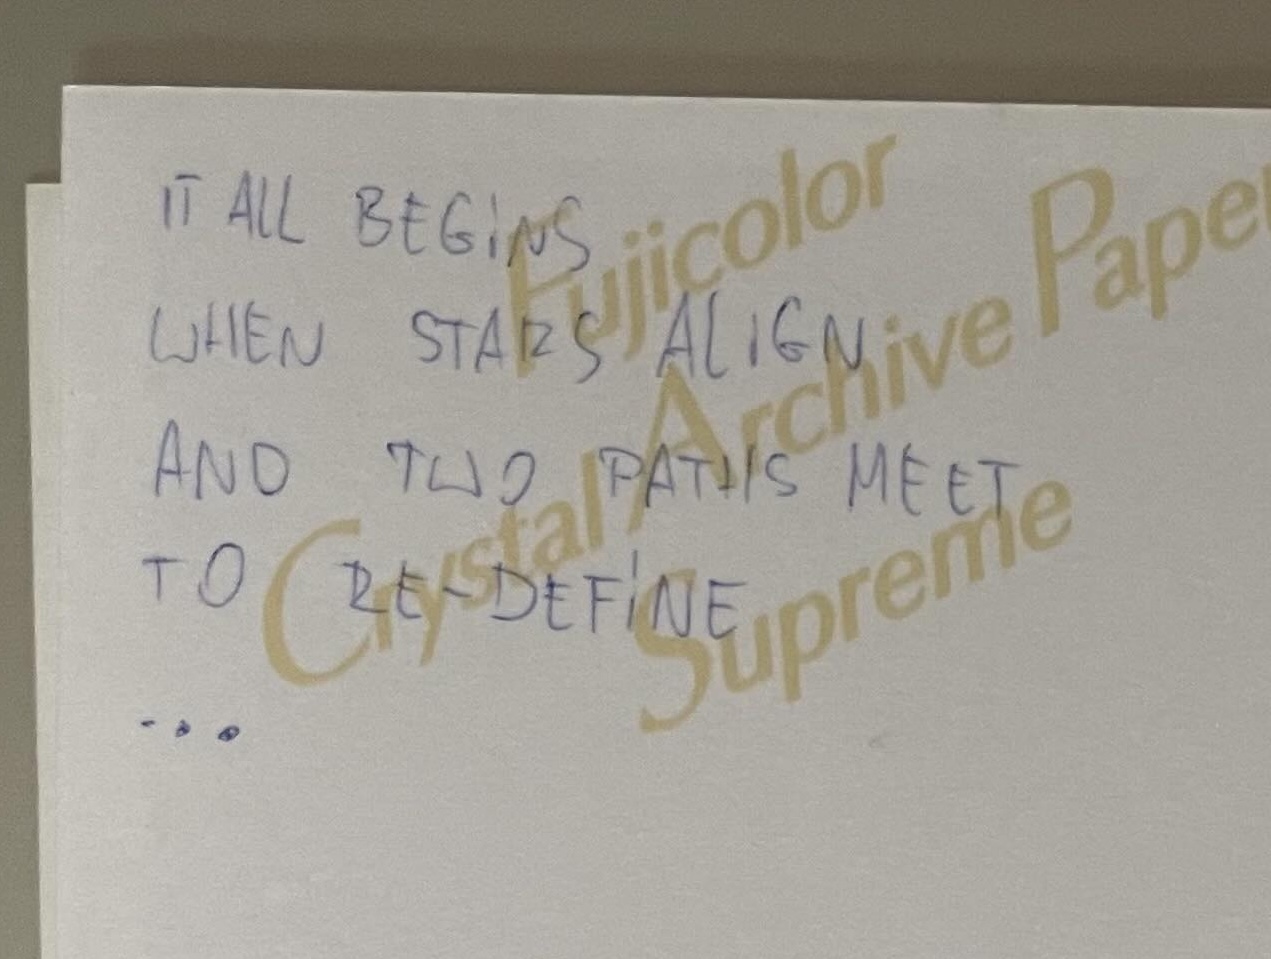 IT ALL BEGiNS
WHEN STARS ALIGN
AND TWO PATHS MEET
TO RE-DEFiNE
...
Fujicolor
Crystal Archive Paper
Supreme